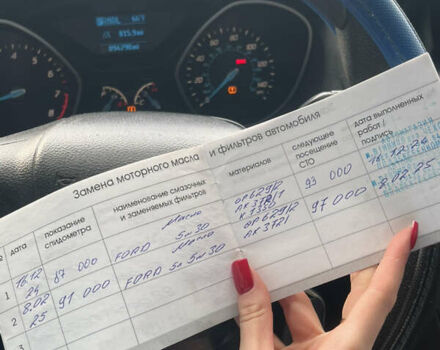 815.9км
094296км
Замена моторного масла и фильтров автомобиля
№
дата
показание спидометра
наименование смазочных и заменяемых фильтров
материалов
следующее посещение СТО
дата выполненных работ / подпись
1
16.12 24
87 000
FORD Масло 5w30
OP629/2
93 000
16.12.24
2
8.02 25
91 000
FORD Масло 5л 5w30
OP629/2
97 000
8.02.25
3